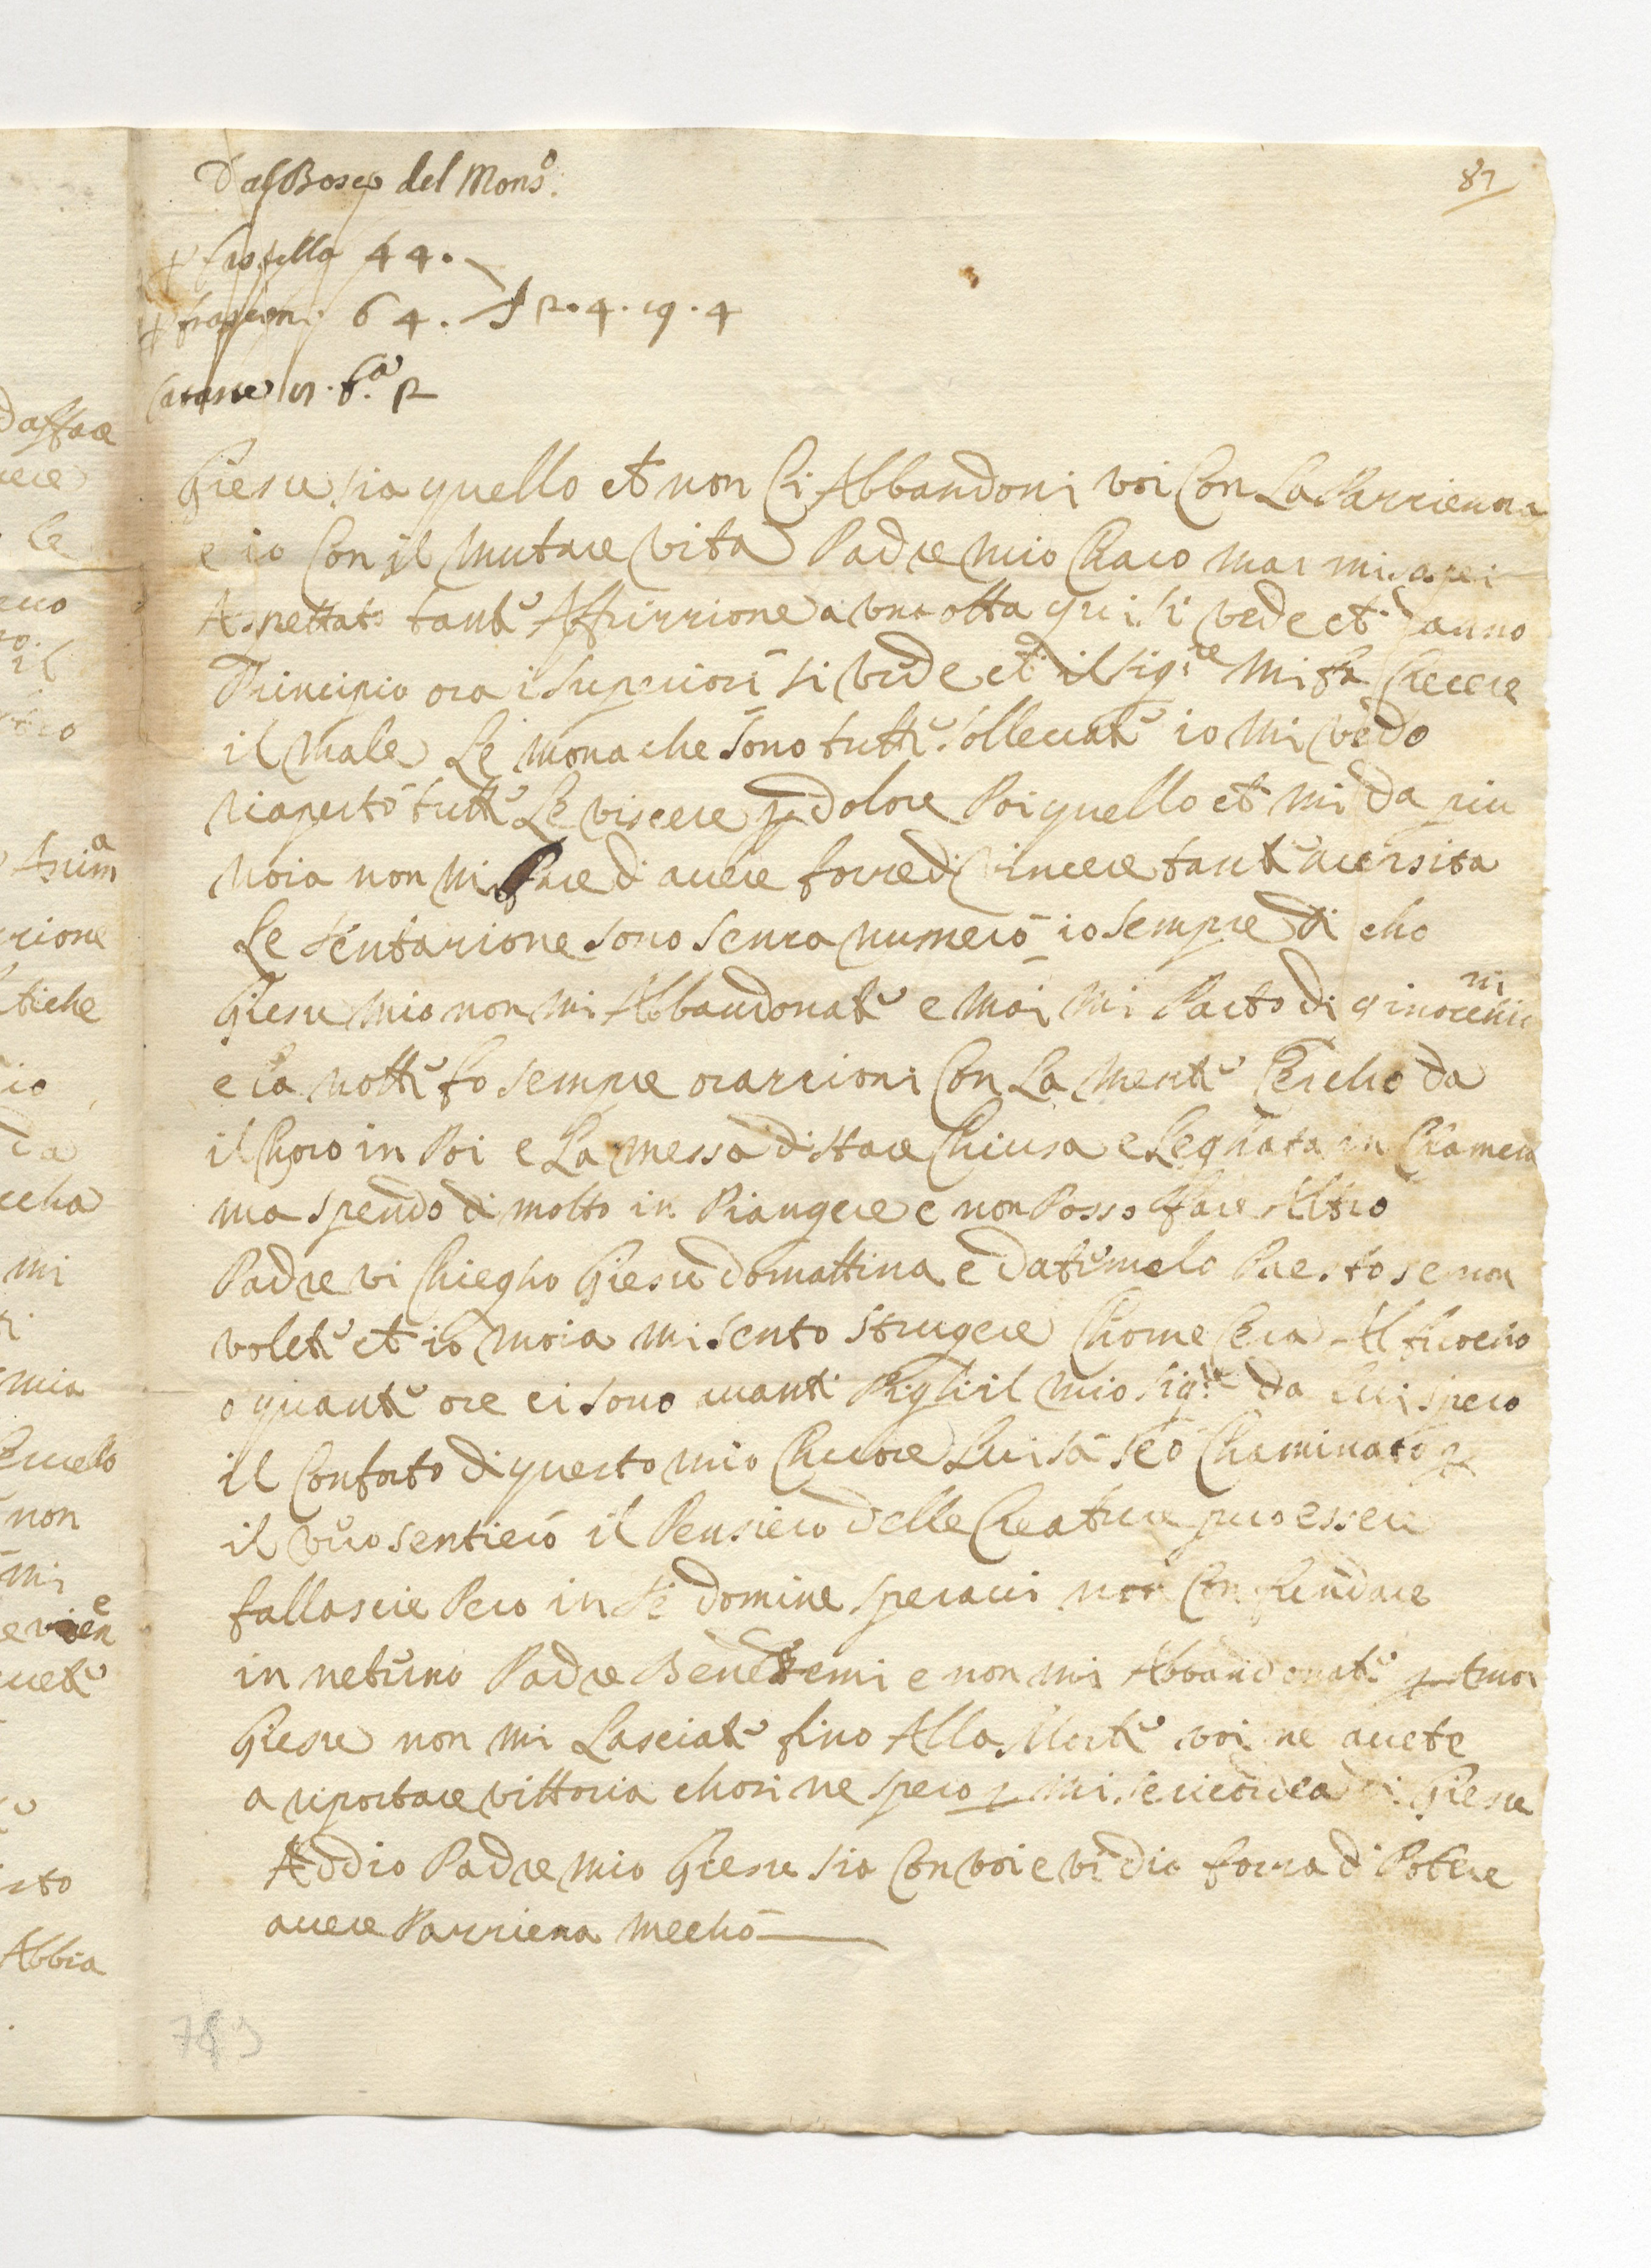 87
Dal Bosco del Mons.o
Castella 44.
frascon 64. 12.4.19.4
Cataste n. 6.a 12
Giesu sia quello et non Ci Abbandoni voi Con La Parrienna
e io Con il mutare vita Padre mio Charo mai mi arei
Aspettato tante Affrirrione a una otta qui si vede et danno
Principio ora i Superiori si vede et il sig.re mi fa Crecere
il male Le monache sono tutte sollevate io mi vedo
riaperto tutte Le viscere p dolore Poi quello et mi da piu
noia non mi Pare d avere forre di vincere tante aversita
Le tentarione sono senra numero io sempre di cho
Giesu mio non mi Abbandonate e mai mi Parto di ginocchi
e la notte fo sempre orarrioni Con La mente Percho da
il Choro in Poi e La messa di stare Chiusa e Legnata in Chamera
ma spendo di molto in Piangere e non Posso fare Altro
Padre vi Chiegho Giesu domattina e datemelo Presto se non
volete et io moia mi sento strugere Chome Cera Al fuocho
o quante ore ci sono avanti Pigli il mio sig.re da lui spero
il Conforto di questo mio Chuore Lui sa se o Chaminato p
il vero sentiero il Pensiero delle Creature puo essere
fallascie Pero in te domine speravi non Confundare
in neterno Padre Beneditemi e non mi Abbandonate p Amor
Giesu non mi Lasciate fino Alla Morte voi ne avete
a riportare vittoria chosi ne spero p misericordea di Giesu
Addio Padre mio Giesu sia Con voi e vi dia forra di Potere
avere Parriena mecho
789